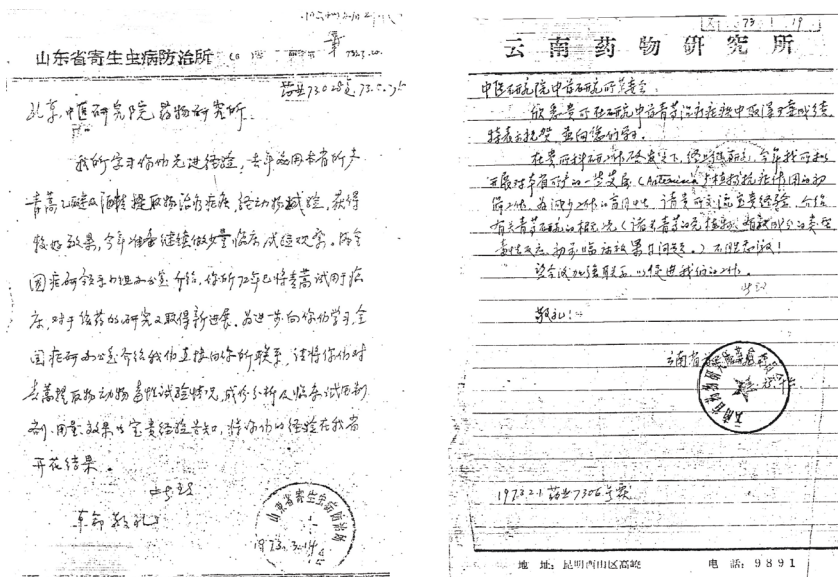 山东省寄生虫病防治所
药业73028号
北京,中医研究院药物研究所.
我所学习你们先进经验,去年应用本省所产
青蒿乙醚及酒精提取物治疗疟疾,经动物试验,获得
较好效果,今年准备继续做少量临床试验观察。据全
国疟研领导小组办公室介绍,你所72年已将青蒿试用于临
床,对于该药的研究又取得新进展。为进一步向你们学习,全
国疟研办公室介绍我们直接向你所联系,请将你们对
青蒿提取物动物毒性试验情况,成份分析及临床试用剂
剂,用量,效果等宝贵经验告知,将你们的经验在我省
开花结果。
此致
革命敬礼
山东省寄生虫病防治所
1973.3.14
73 1 19
云南药物研究所
中医研究院中药研究所革委会:
欣悉贵所在研究中药青蒿治疗疟疾中取得可喜成绩,
特表示祝贺,并向您们学习。
在贵所科研工作启发下,经研究,今年我所拟
开展对本省所产的一些艾属(Artemisia)植物抗疟作用的初
筛工作,为减少工作的盲目性,请贵所交流宝贵经验,介绍
有关青蒿研究的概况(诸如青蒿的先植物,有效成分的类型
毒性反应,初步临床效果等问题。)不胜感谢!
望今后加强联系,以促进我们的工作。
此致
敬礼!
云南省药物研究所革命委员会
1973.2.1 药业7306号复
地 址:昆明西山区高峣
电 话:9891